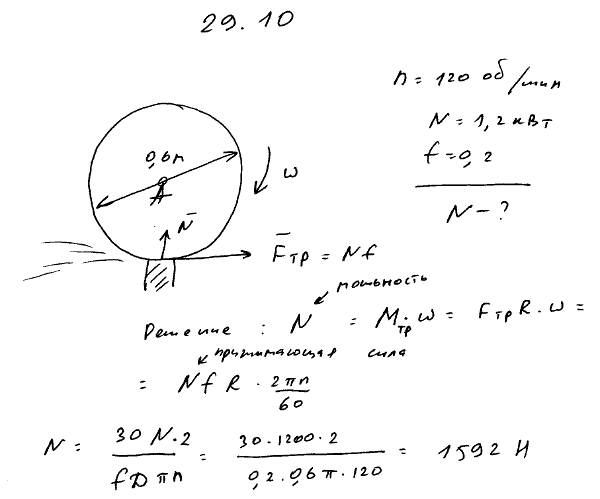 29.10
n = 120 об/мин
N = 1,2 кВт
f = 0,2
N - ?
0,6м
ω
N̄
F̄тр = Nf
мощность
Решение : N = Mтр·ω = FтрR·ω =
прижимающая сила
= NfR · 2πn/60
N = 30N·2/fDπn = 30·1200·2/0,2·0,6π·120 = 1592 Н